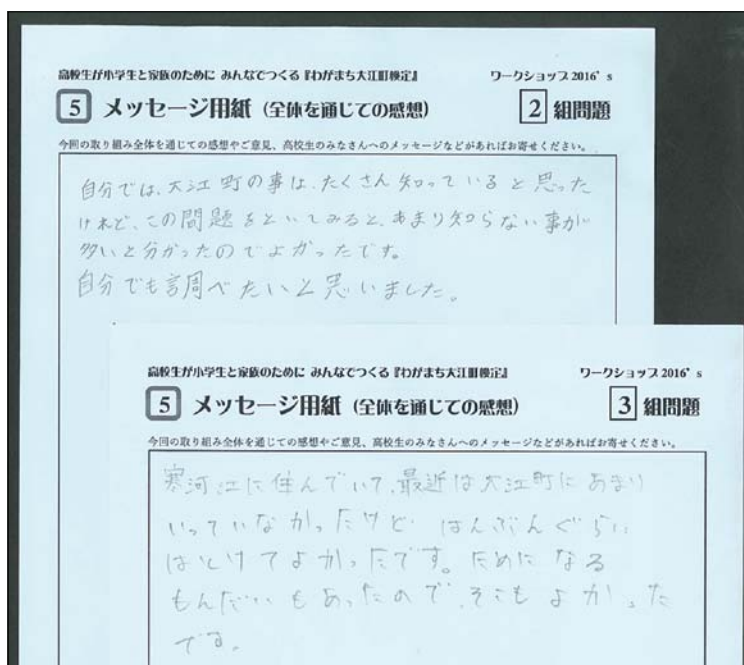 高校生が小学生と家族のために みんなでつくる『わがまち大江町検定』 ワークショップ 2016' s
5 メッセージ用紙 (全体を通じての感想) 2 組問題
今回の取り組み全体を通じての感想やご意見、高校生のみなさんへのメッセージなどがあればお寄せください。
自分では、大江町の事は、たくさん知っていると思った
けれど、この問題をといてみると、あまり知らない事が
多いと分かったのでよかったです。
自分でも調べたいと思いました。
高校生が小学生と家族のために みんなでつくる『わがまち大江町検定』 ワークショップ 2016' s
5 メッセージ用紙 (全体を通じての感想) 3 組問題
今回の取り組み全体を通じての感想やご意見、高校生のみなさんへのメッセージなどがあればお寄せください。
寒河江に住んでいて、最近は大江町にあまり
いっていなかったけど はんぶんぐらい
はとけてよかったです。ためになる
もんだいもあったので、そこもよかった
です。